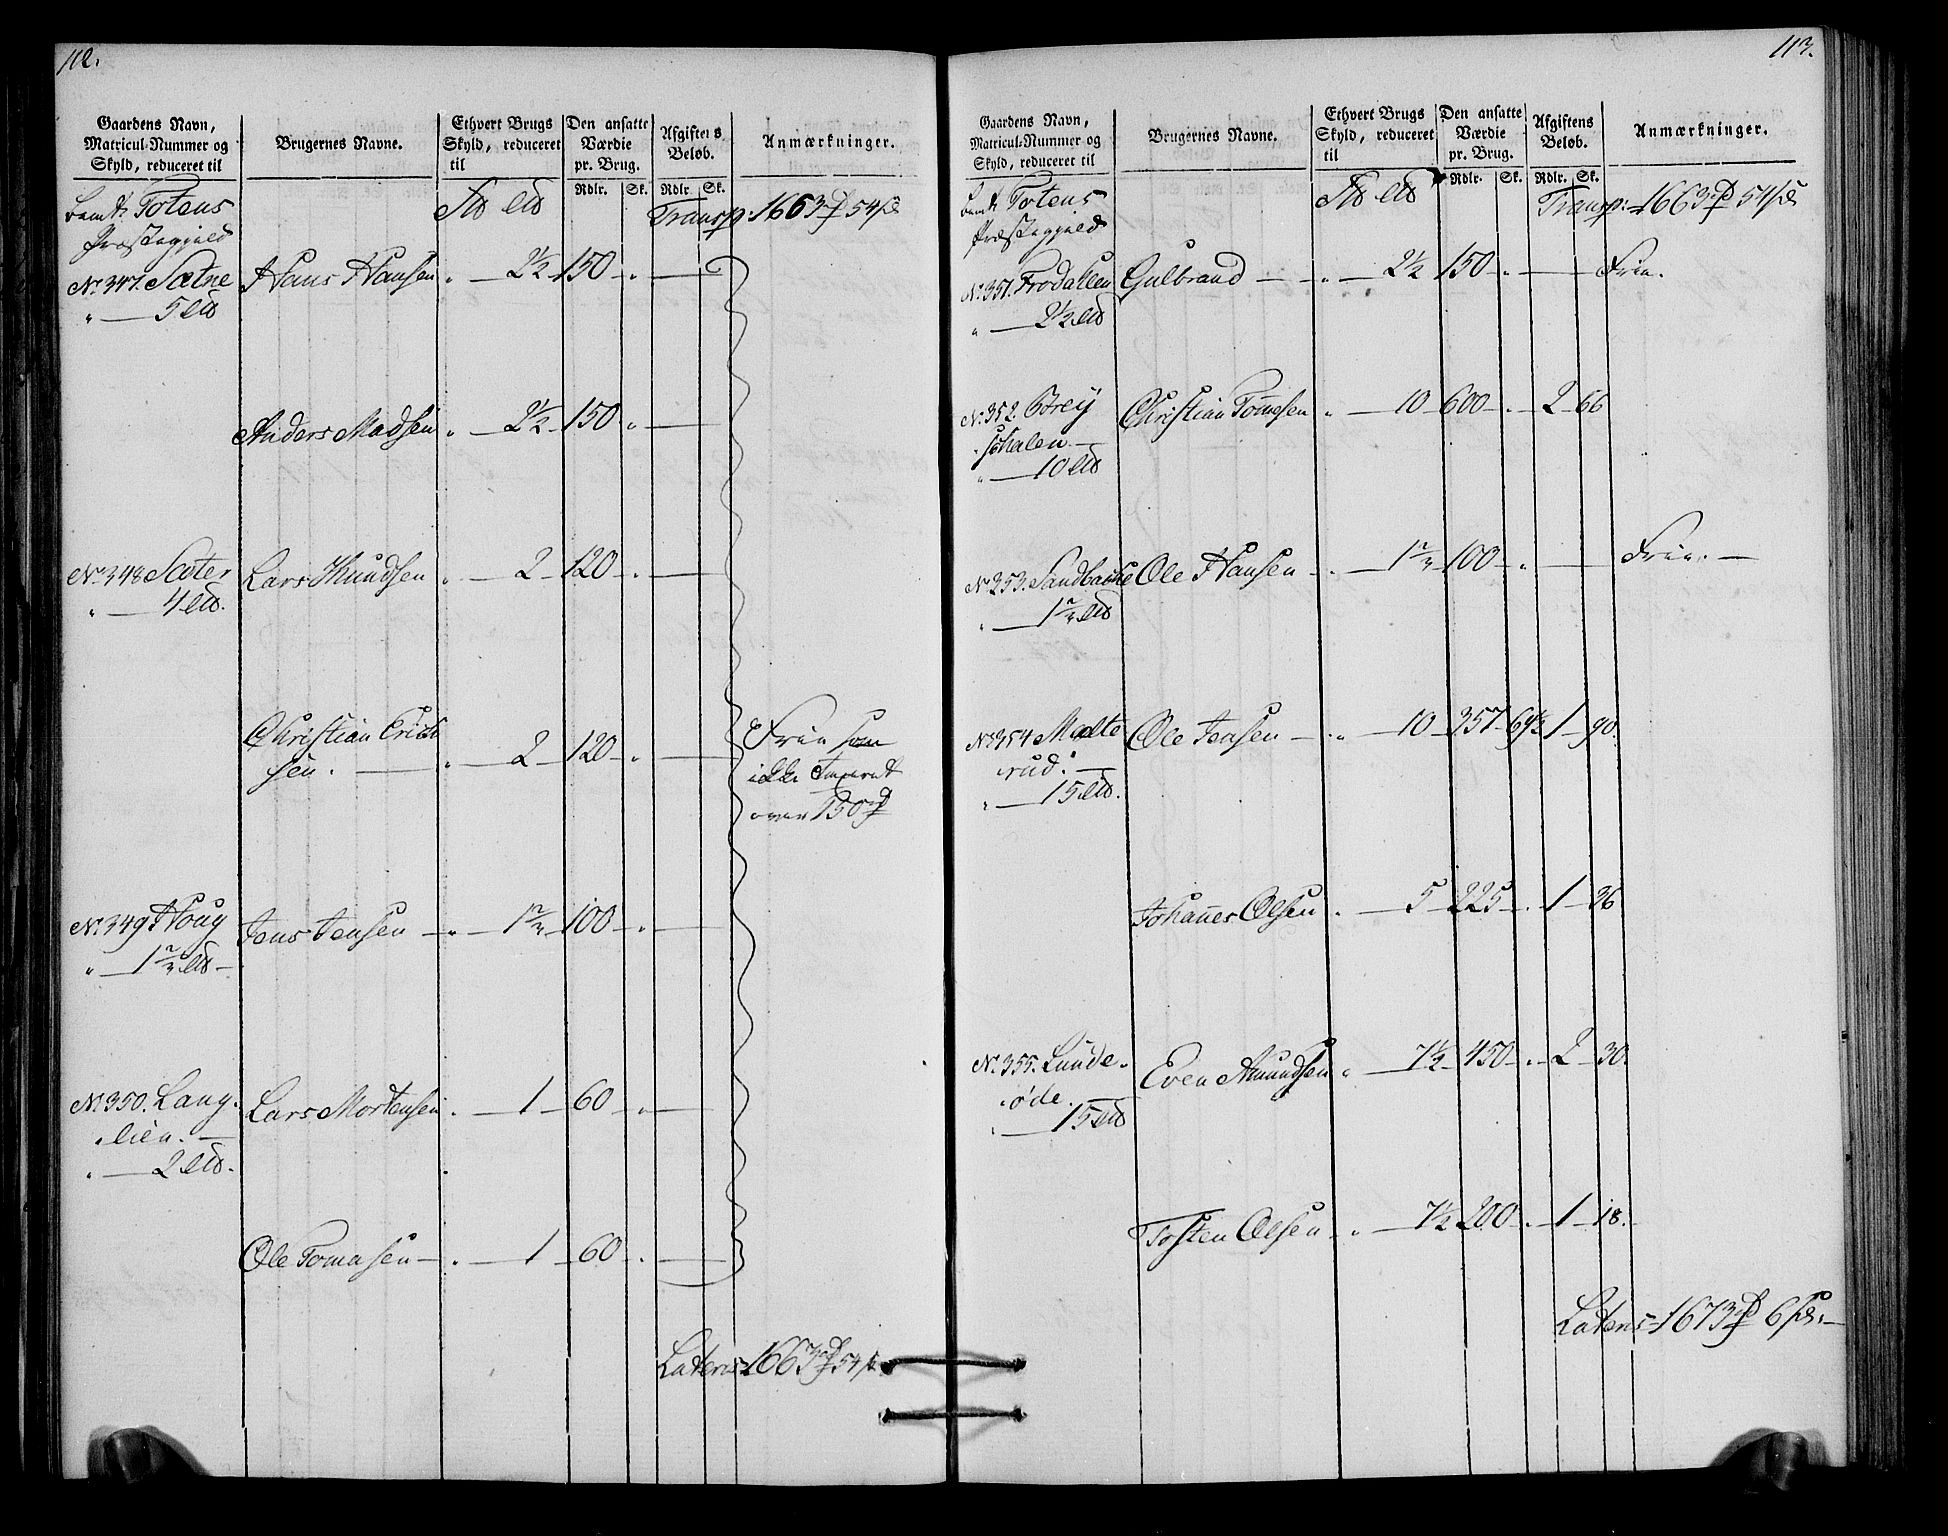 112.
Gaardens Navn, Matricul-Nummer og Skyld, reduceret til | Brugernes Navne. | Ethvert Brugs Skyld, reduceret til | Den ansatte Værdie pr. Brug. Rdlr. Sk. | Afgiftens Beløb. Rdlr. Sk. | Anmærkninger.
bemt: Totens
Præstegjeld
Transp: 1663 rd 54 s
No 347. Sætne Hans Hansen " 2½ 150 "
" 5
Anders Madsen " 2½ 150 "
No 348 Sæter Lars Knudsen " 2 120 "
" 4
Christian Erich
sen. " 2 120 "
Frie som
ikke Taxeret
over 150 rd
No 349 Houg Jens Jensen " 1⅔ 100 "
" 1⅔
No 350. Lang- Lars Mortensen " 1 60 "
lien.
" 2
Ole Tomasen " 1 60 "
Lateris 1663 rd 54 s
113.
Gaardens Navn, Matricul-Nummer og Skyld, reduceret til | Brugernes Navne. | Ethvert Brugs Skyld, reduceret til | Den ansatte Værdie pr. Brug. Rdlr. Sk. | Afgiftens Beløb. Rdlr. Sk. | Anmærkninger.
bemt: Totens
Præstegjeld
Transp: 1663 rd 54 s
No 351. Frodallen Gulbrand " 2½ 150 " Frie.
" 2½
No 352. Børey Christian Tomesen " 10 600 " 2 66
schalen
" 10
No 353. Sandbache Ole Hansen " 1⅔ 100 " Frie.
" 1⅔
No 354 Malte Ole Jensen " 10 357 64½ 1 90.
rud.
" 15
Johannes Olsen " 5 225 " 1 36
No 355. Lunde- Even Amundsen " 7½ 450 " 2 30.
øde.
" 15
Tosten Olsen " 7½ 200 " 1 18.
Lateris 1673 rd 6 s